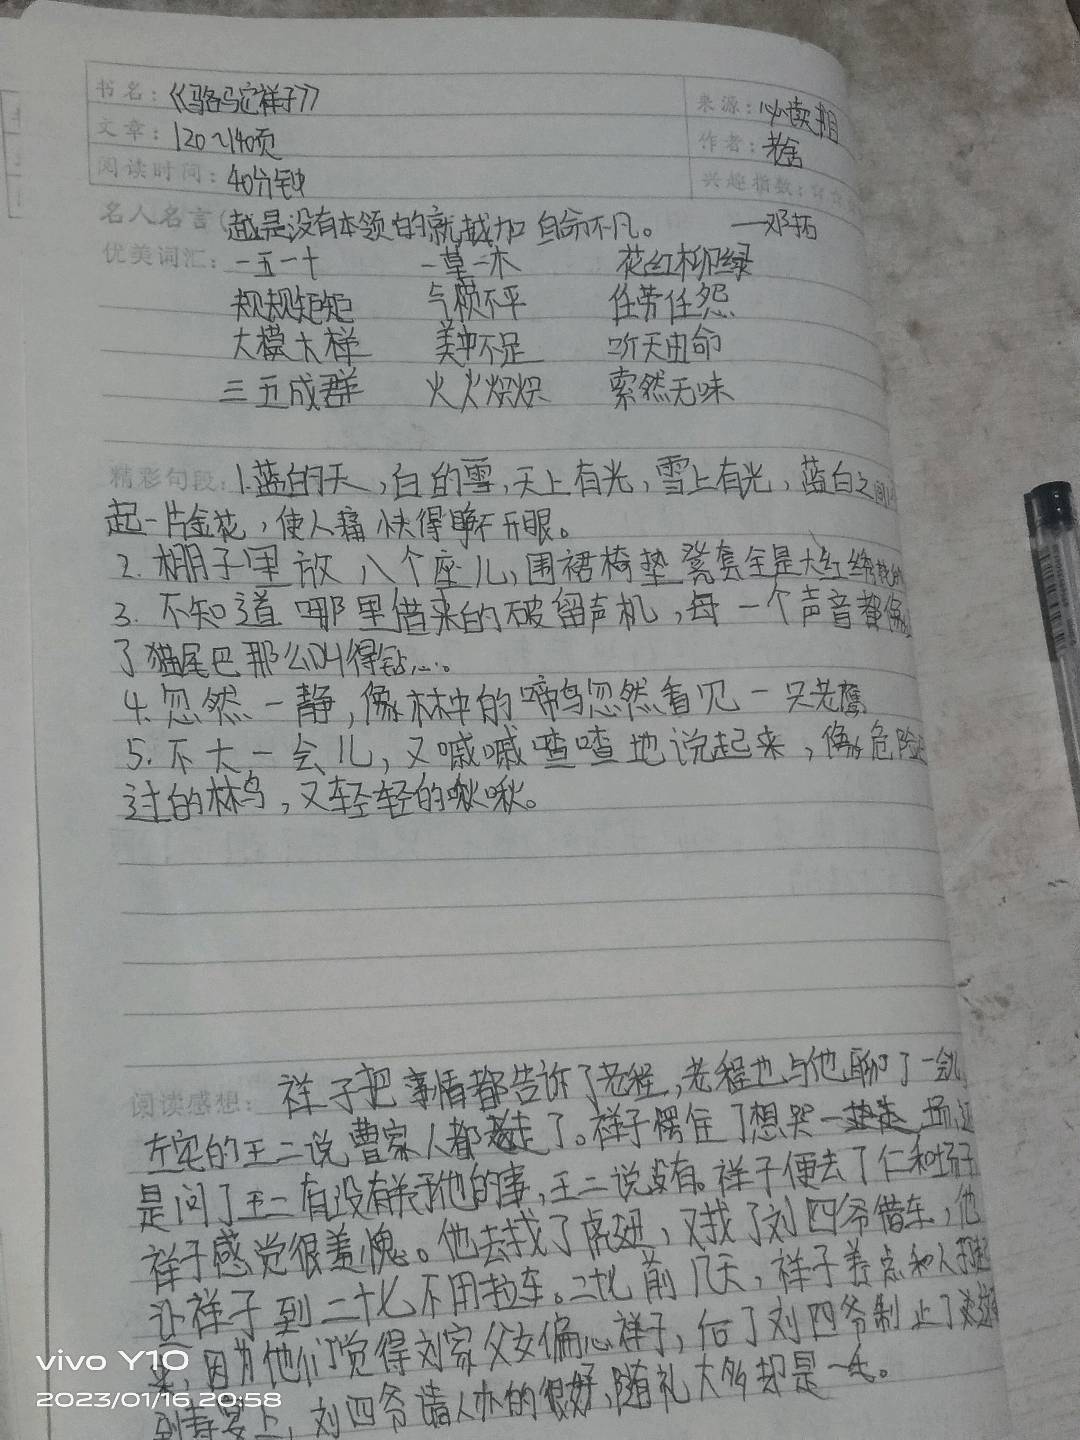 书名：《骆驼祥子》 来源：必读书目
文章：120～140页 作者：老舍
阅读时间：40分钟 兴趣指数：☆☆
名人名言（越是没有本领的就越加自命不凡。 —邓拓
优美词汇：一五一十 一草一木 花红柳绿
规规矩矩 气愤不平 任劳任怨
大模大样 美中不足 听天由命
三五成群 火火炽炽 索然无味
精彩句段：1.蓝的天，白的雪，天上有光，雪上有光，蓝白之间
起一片金花，使人痛快得睁不开眼。
2.棚子里放八个座儿，围裙椅垫凳套全是大红绣花的
3.不知道哪里借来的破留声机，每一个声音都像
了猫尾巴那么叫得钻……。
4.忽然一静，像林中的啼鸟忽然看见一只老鹰
5.不大一会儿，又嘁嘁喳喳地说起来，像危险
过的林鸟，又轻轻的啾啾。
阅读感想：祥子把事情都告诉了老程，老程也与他聊了一会儿
左宅的王二说曹家人都走了。祥子愣住了想哭一场
是问了王二有没有关于他的事，王二说没有。祥子便去了仁和场子
祥子感觉很羞愧。他去找了虎妞，又找了刘四爷借车，他
让祥子到二十七不用拉车。二十七前几天，祥子差点和人打起
来，因为他们觉得刘家父女偏心祥子，后了刘四爷制止了
到寿宴上，刘四爷请人办的很好，随礼大多却是一毛。
vivo Y10
2023/01/16 20:58